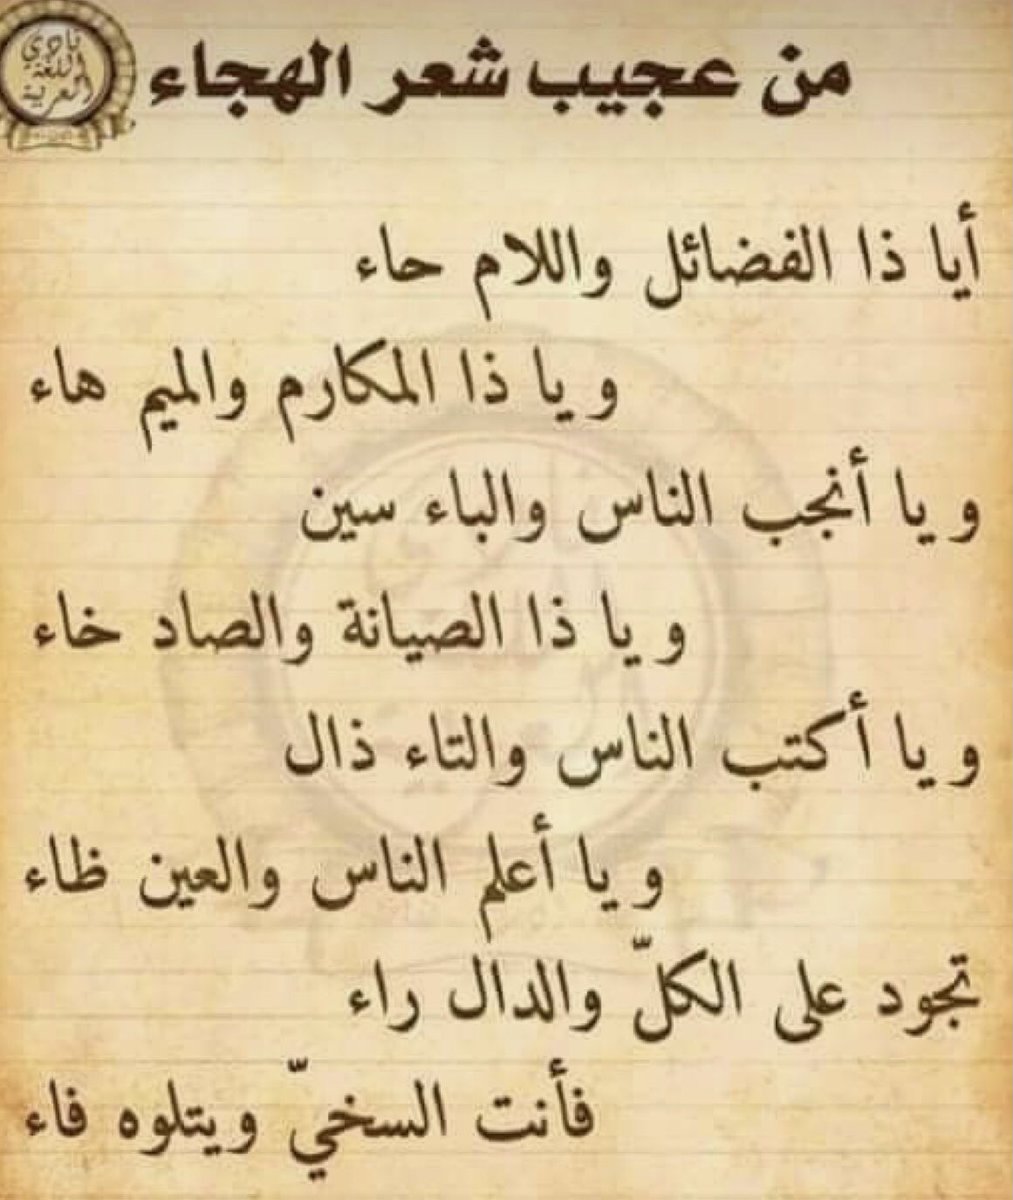 من عجيب شعر الهجاء
نادي اللغة العربية
أيا ذا الفضائل واللام حاء
و يا ذا المكارم والميم هاء
و يا أنجب الناس والباء سين
و يا ذا الصيانة والصاد خاء
و يا أكتب الناس والتاء ذال
و يا أعلم الناس والعين ظاء
تجود على الكلّ والدال راء
فأنت السخيّ ويتلوه فاء